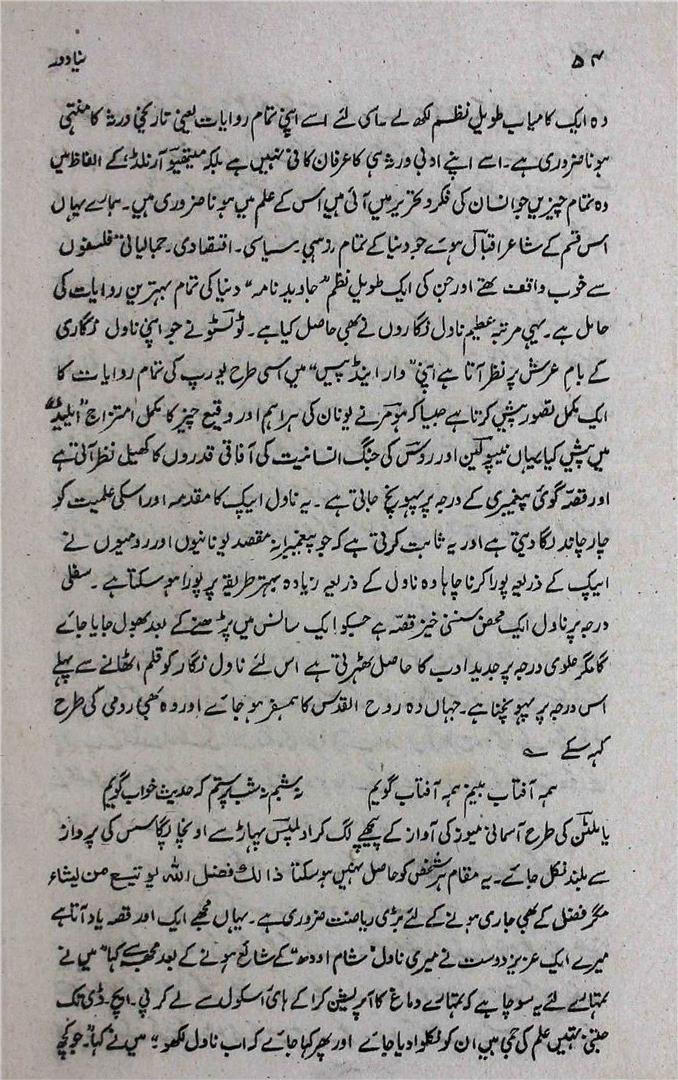 ۵۴ نیا دور
وہ ایک کامیاب طویل نظم لکھ لے ۔ اسی لئے اسے اپنی تمام روایات یعنی تاریخی ورثہ کا منتہی
ہونا ضروری ہے ۔ اسے اپنے ادبی ورثہ ہی کا عرفان کافی نہیں ہے بلکہ میتھیو آرنلڈ کے الفاظ میں
وہ تمام چیزیں جو انسان کی فکر و تحریر میں آئی ہیں اس کے علم میں ہونا ضروری ہیں ۔ ہمارے یہاں
اس قسم کے شاعر اقبال ہوئے جو دنیا کے تمام مذہبی ۔ سیاسی ۔ اقتصادی ۔ جمالیاتی فلسفوں
سے خوب واقف تھے اور جن کی ایک طویل نظم "جاوید نامہ" دنیا کی تمام بہترین روایات کی
حامل ہے ۔ یہی مرتبہ عظیم ناول نگاروں نے بھی حاصل کیا ہے ۔ ٹولسٹو نے جو اپنی ناول نگاری
کے بام عرش پر نظر آتا ہے اپنی "وار اینڈ پیس" میں اسی طرح یورپ کی تمام روایات کا
ایک مکمل تصور پیش کرتا ہے جیسا کہ ہومر نے یونان کی ہر اہم اور وقیع چیز کا مکمل امتزاج "ایلیڈ"
میں پیش کیا یہاں نیپولین اور روس کی جنگ انسانیت کی آفاقی قدروں کا کھیل نظر آتی ہے
اور قصہ گوئی پیغمبری کے درجہ پر پہونچ جاتی ہے ۔ یہ ناول ایپک کا مقدمہ اور اسکی علمیت کو
چار چاند لگا دیتی ہے اور یہ ثابت کرتی ہے کہ جو پیغمبرانہ مقصد یونانیوں اور رومیوں نے
ایپک کے ذریعہ پورا کرنا چاہا وہ ناول کے ذریعہ زیادہ بہتر طریقہ پر پورا ہو سکتا ہے ۔ سفلی
درجہ پر ناول ایک محض سنسنی خیز قصہ ہے جسکو ایک سانس میں پڑھنے کے بعد بھول جایا جائے
گا مگر علوی درجہ پر جدید ادب کا حاصل ٹھہرتی ہے اس لئے ناول نگار کو قلم اٹھانے سے پہلے
اس درجہ پر پہونچنا ہے ۔ جہاں وہ روح القدس کا ہمسفر ہو جائے اور وہ بھی رومی کی طرح
کہہ سکے ؎
ہمہ آفتاب بینم ہمہ آفتاب گویم نہ شبم نہ شب پرستم کہ حدیث خواب گویم
یا ملٹن کی طرح آسمانی میوز کی آواز کے پیچھے لگ کر اولمپس پہاڑ سے اونچا پگاسس کی پرواز
سے بلند نکل جائے ۔ یہ مقام ہر شخص کو حاصل نہیں ہو سکتا ذالک فضل اللہ یوتیع من یشاء
مگر فضل کے بھی جاری ہونے کے لئے بڑی ریاضت ضروری ہے ۔ یہاں مجھے ایک اور قصہ یاد آتا ہے
میرے ایک عزیز دوست نے میری ناول "شام اودھ" کے شائع ہونے کے بعد مجھ سے کہا "میں نے
تمہارے لئے یہ سوچا ہے کہ تمہارے دماغ کا آپریشن کرا کے ہائی اسکول سے لے کر پی ۔ ایچ ۔ ڈی تک
جتنی تہیں علم کی جمی ہیں ان کو نکلوا دیا جائے اور پھر کہا جائے کہ اب ناول لکھو ۔" میں نے کہا ۔ "جو کچھ